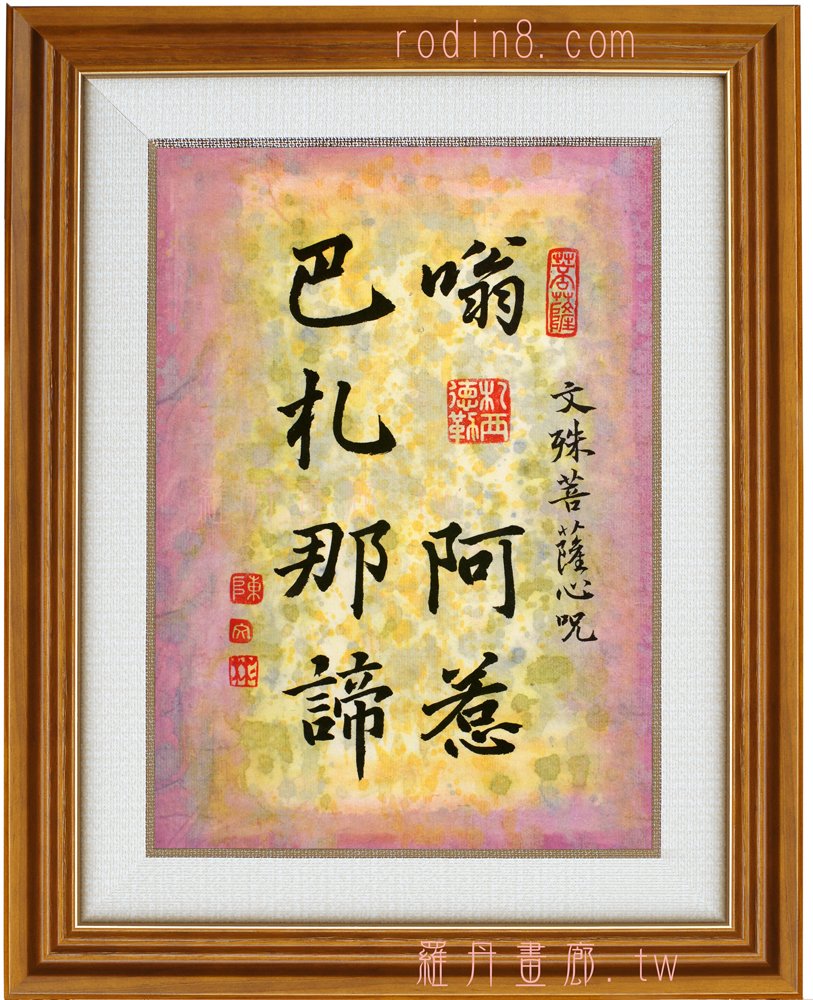 rodin8.com
菩薩
文殊菩薩心咒
嗡
扎西德勒
阿惹
巴札那諦
陳
羅丹畫廊.tw